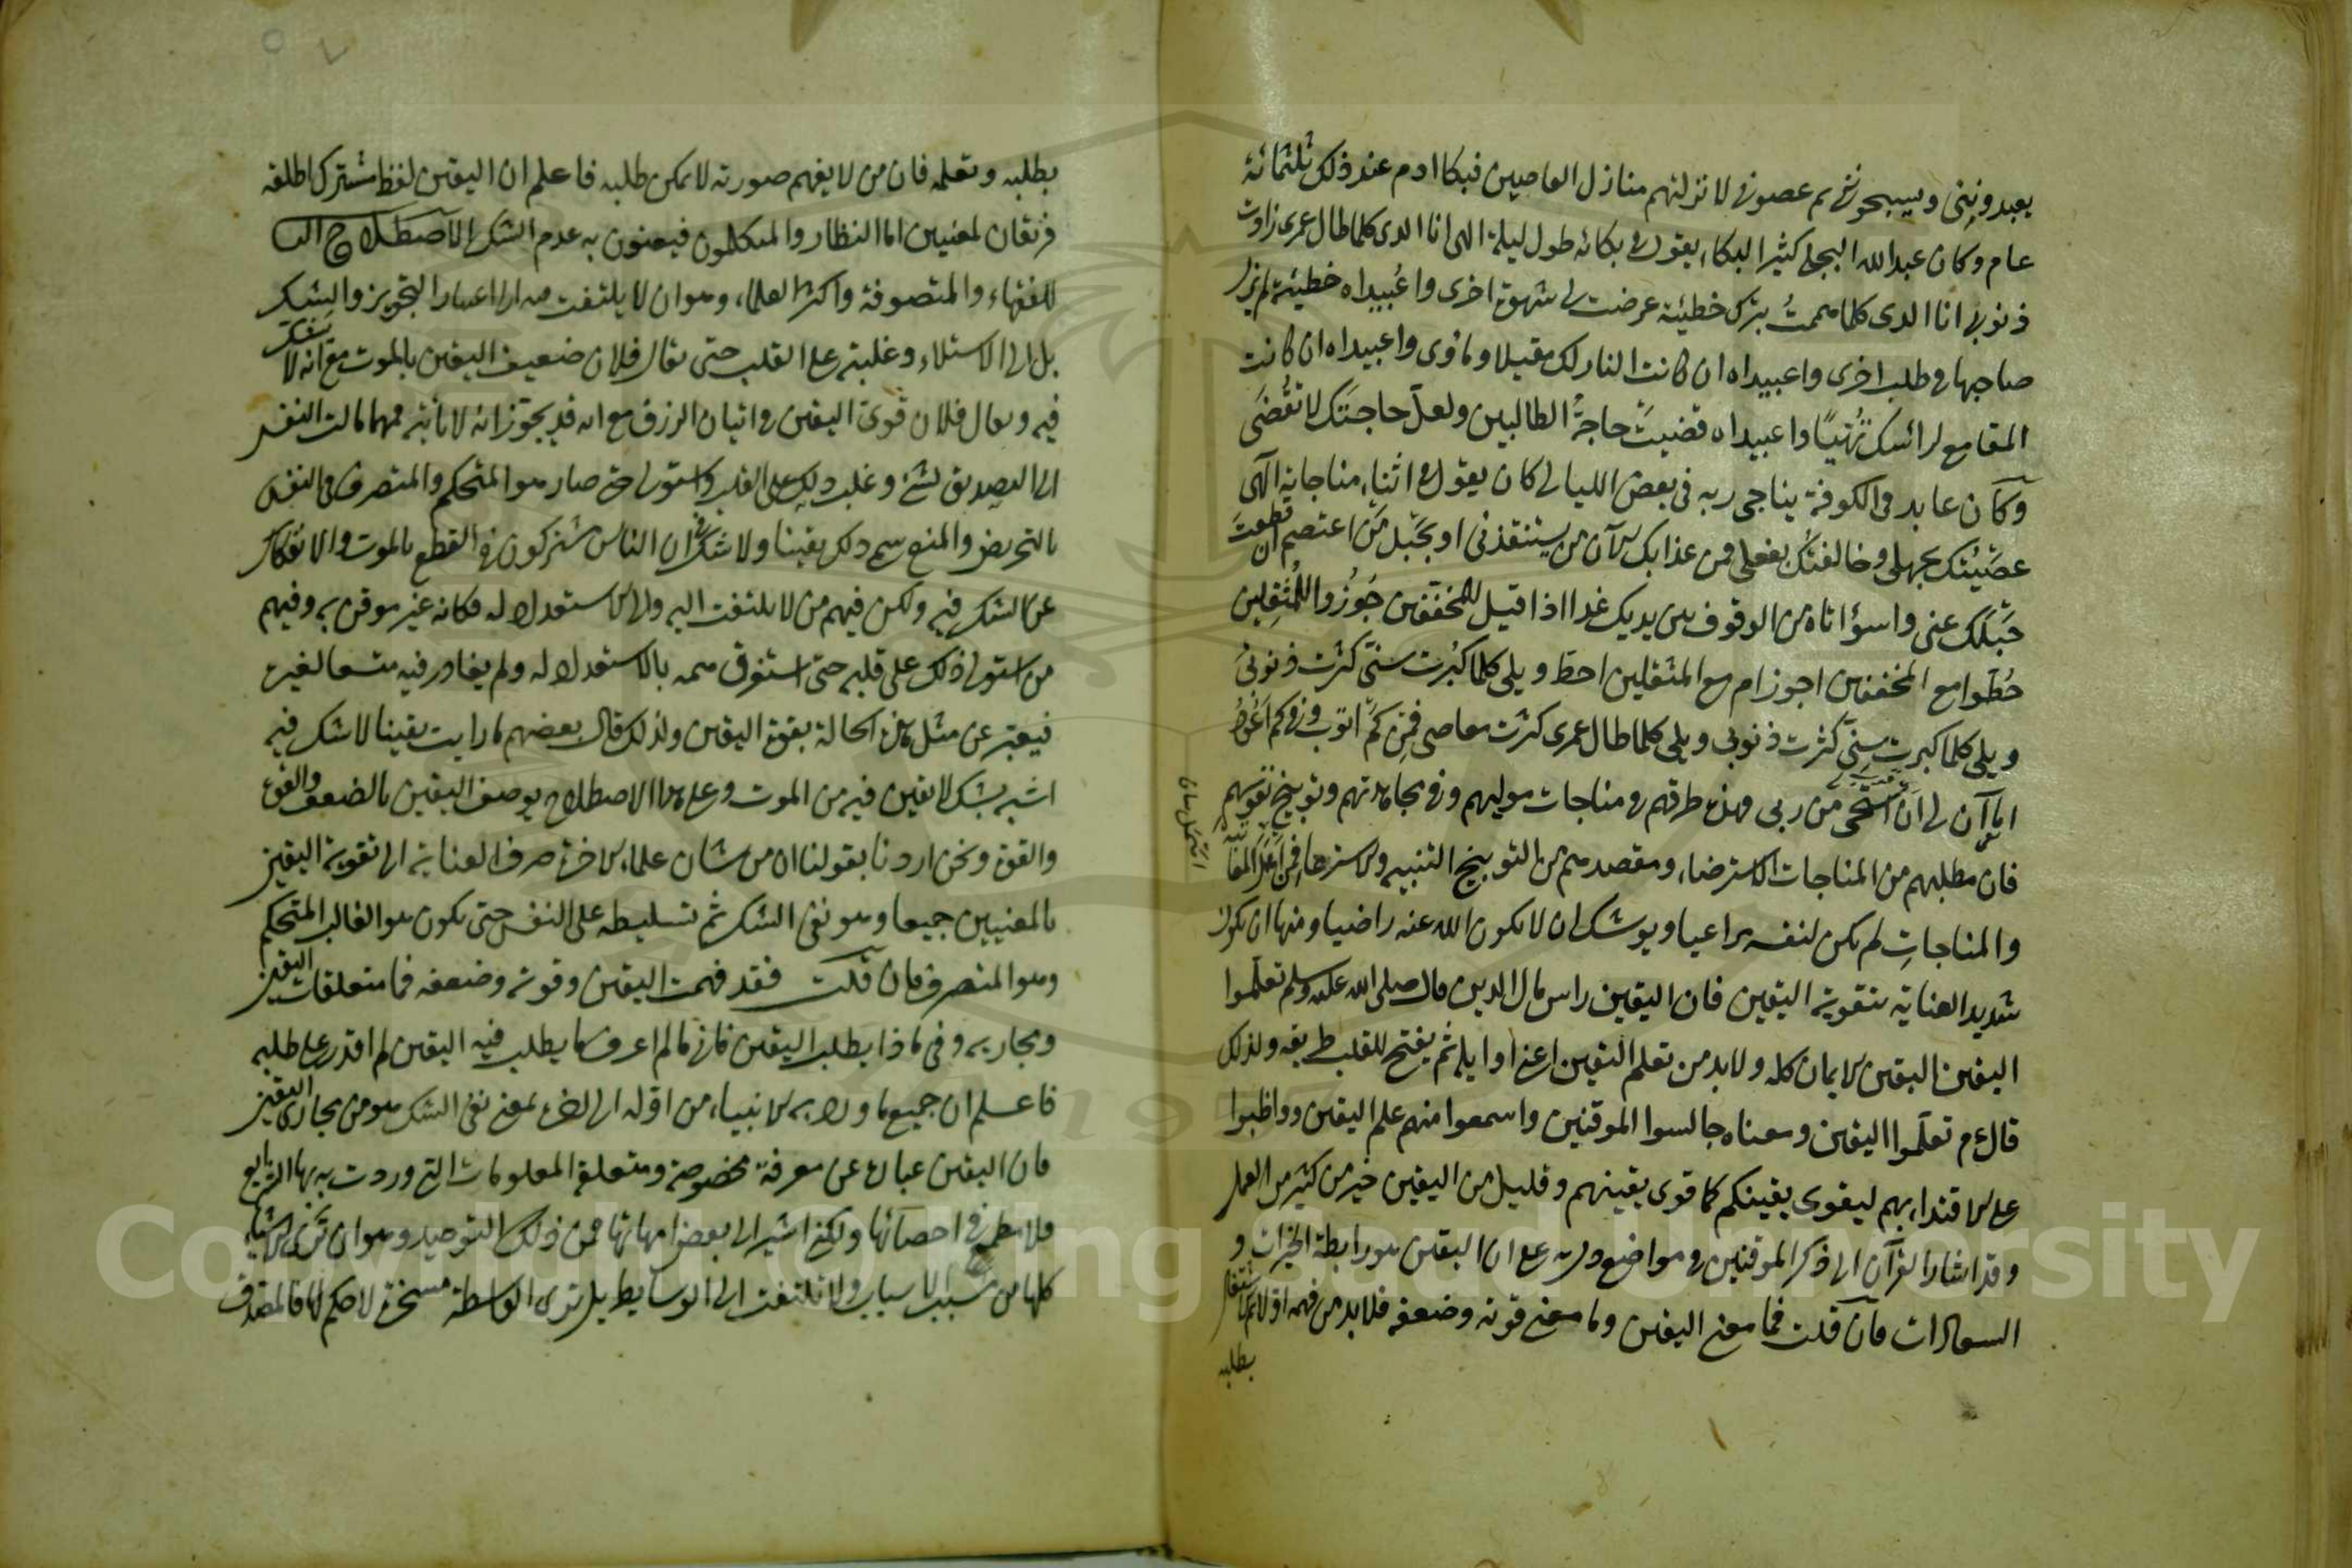 يعبدونني ويسبحونني ثم عصوني لانزلتهم منازل العاصين فبكا ادم عند ذلك ثلثمائة
عام وكان عبدالله البجلي كثير البكاء يقول في بكائه طول ليلة الهى انا الذى كلما طال عمرى زادت
ذنوبى انا الذى كلما هممتُ بترك خطيئة عرضت لى شهوة اخرى واعُبيداه خطيئة لم يَبْلَ
صاحبها وطلب اخرى واعبيداه ان كانت النار لك مقيلا وماوى واعبيداه ان كانت
المقامع لرائسك تُهَيَّا واعبيداه قضيت حاجةُ الطالبين ولعلّ حاجتَك لا تُقْضَى
وكان عابد فى الكوفة يناجى ربه فى بعض الليالى كان يقول فى اثناء مناجاية الهى
عصَيْتُك بجهلى وخالفتُك بفعلى فمن عذابك الآن من يستنقذنى او بحَبْل مَن اعتصم ان قطعتَ
حَبْلَك عنى واسؤاتاه من الوقوف بين يديك غدا اذا قيل للمخففين جُوْزُوا للمُثقِلين
حُطّوا مع المخففين اجوز ام مع المثقلين احط ويلى كلما كبُرت سنّى كثرت ذنوبى
ويلى كلما كبرت سِنّى كثرت ذنوبى ويلى كلما طال عمرى كثرت معاصى فمِن كَمْ اتوب وفى كم اَعُوْدُ
اما آن لى ان استحى من ربى فهذه طرقهم فى مناجات موليهم وفى مجاهدتهم وتوبيخ نفوسهم
فان مطلبهم من المناجات الاسترضاء ومقصدهم من التوبيخ التنبيه والاسترعاء فمن اهمل المعاتبة
والمناجاتِ لم يكن لنفسه مراعيا ويوشك ان لا يكون الله عنه راضيا ومنها ان يكون
شديد العناية بتقوية اليقين فان اليقين راس مال الدين قال صلى الله عليه وسلم تعلّموا
اليقين اليقين الايمان كله ولا بد من تعلم اليقين اعنى اوايله ثم يفتح للقلب طريقه ولذلك
قال عم تعلّموا اليقين ومعناه جالسوا الموقنين واسمعوا منهم علم اليقين وواظبوا
على الاقتداء بهم ليقوى يقينكم كما قوى يقينهم وقليل من اليقين خير من كثير من العمل
وقد اشار القرآن الى ذكر الموقنين فى مواضع دل به على ان اليقين هو رابطة الخيرات و
السعادات فان قلت فما معنى اليقين وما معنى قوته وضعفه فلا بد من فهمه اولا ثم الاشتغال
بطلبه
بطلبه وتعلمه فان من لا يفهم صورته لا يمكن طلبه فاعلم ان اليقين لفظ مشترك اطلقه
فريقان لمعنيين اما النظار والمتكلمون فيعنون به عدم الشك الاصطلاح الثانى
للفقهاء والمتصوفة واكثر العلماء وهو ان لا يلتفت فيه الى اعتبار التجويز والشك
بل الى الاستلاء وغلبته على القلب حتى يقال فلان ضعيف اليقين بالموت مع انه لا يشك
فيه ويقال فلان قوى اليقين فى اتيان الرزق مع انه قد يجوّز انه لا ياتيه فمهما مالت النفس
الى التصديق لشئ وغلب ذلك على القلب واستولى حتى صار هو المتحكم والمتصرف فى النفس
بالتحريض والمنع سمى ذلك يقينا ولا شك فى ان الناس مشتركون فى القطع بالموت والانفكاك
عن الشك فيه ولكن فيهم من لا يلتفت اليه والى الاستعداد له فكانه غير موقن به وفيهم
من استولى ذلك على قلبه حتى استغرق همه بالاستعداد له ولم يغادر فيه متسعا لغيره
فيعبّر عن مثل هذه الحالة بقوة اليقين ولذلك قال بعضهم ما رايت يقينا لا شك فيه
اشبه بشك لا يقين فيه من الموت وعلى هذا الاصطلاح يوصف اليقين بالضعف والقوة
والقوة ونحن اردنا بقولنا ان من شان علماء الاخرة صرف العناية الى تقوية اليقين
بالمعنيين جميعا وهو نفى الشك ثم تسليطه على النفس حتى يكون هو الغالب المتحكم
وهو المتصرف فان قلت فقد فهمت اليقين وقوته وضعفه فما متعلقات اليقين
ومجاريه وفى ماذا يطلب اليقين فانى ما لم اعرف ما يطلب فيه اليقين لم اقدر على طلبه
فاعلم ان جميع ما ورد به الانبياء من اوّله الى اخره بمعنى نفى الشك هو من مجارى اليقين
فان اليقين عبارة عن معرفة مخصوصة ومتعلقة المعلومات التى وردت بها الشرايع
فلا مطمع فى احصائها ولكنى اشير الى بعض امهاتها فمن ذلك التوحيد وهو ان ترى الاشياء
كلها من مسبب الاسباب ولا تلتفت الى الوسايط بل ترى الواسطة مسخرة لا حكم لها فالمصدق